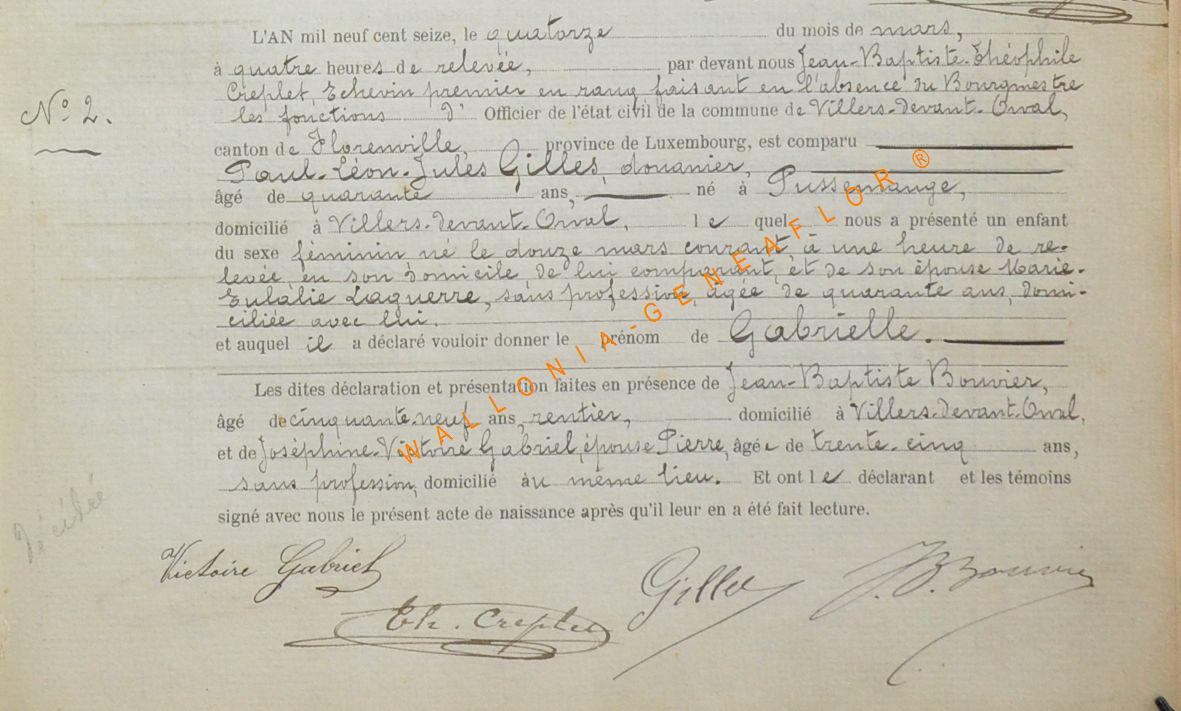 L'AN mil neuf cent seize, le quatorze du mois de mars,
à quatre heures de relevée, par devant nous Jean-Baptiste-Théophile
Creplet, Echevin premier en rang faisant en l'absence du Bourgmestre
N° 2. les fonctions d' Officier de l'état civil de la commune de Villers-devant-Orval,
canton de Florenville, province de Luxembourg, est comparu
Paul-Léon-Jules Gilles, douanier,
âgé de quarante ans, né à Pussemange,
domicilié à Villers-devant-Orval, le quel nous a présenté un enfant
du sexe féminin né le douze mars courant, à une heure de re-
levée, en son domicile de lui comparant, et de son épouse Marie-
Eulalie Laguerre, sans profession, âgée de quarante ans, domi-
ciliée avec lui.
et auquel il a déclaré vouloir donner le prénom de Gabrielle.
Les dites déclaration et présentation faites en présence de Jean-Baptiste Bouvier,
âgé de cinquante-neuf ans, rentier, domicilié à Villers-devant-Orval,
et de Joséphine-Victoire Gabriel, épouse Pierre, âgée de trente-cinq ans,
sans profession, domicilié au même lieu. Et ont le déclarant et les témoins
signé avec nous le présent acte de naissance après qu'il leur en a été fait lecture.
décédée
Victoire Gabriel
Th. Creplet
Gilles
J.B. Bouvier
WALLONIA-GENEAFLOR ®